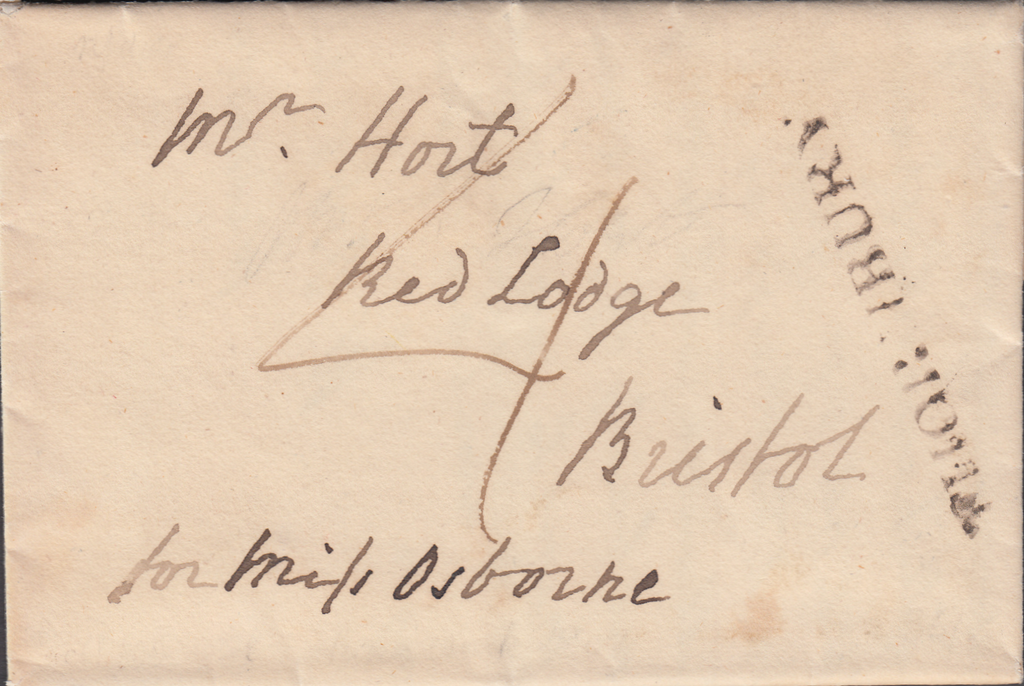 Mr. Hort
Red Lodge
Bristol
for Miss Osborne
4